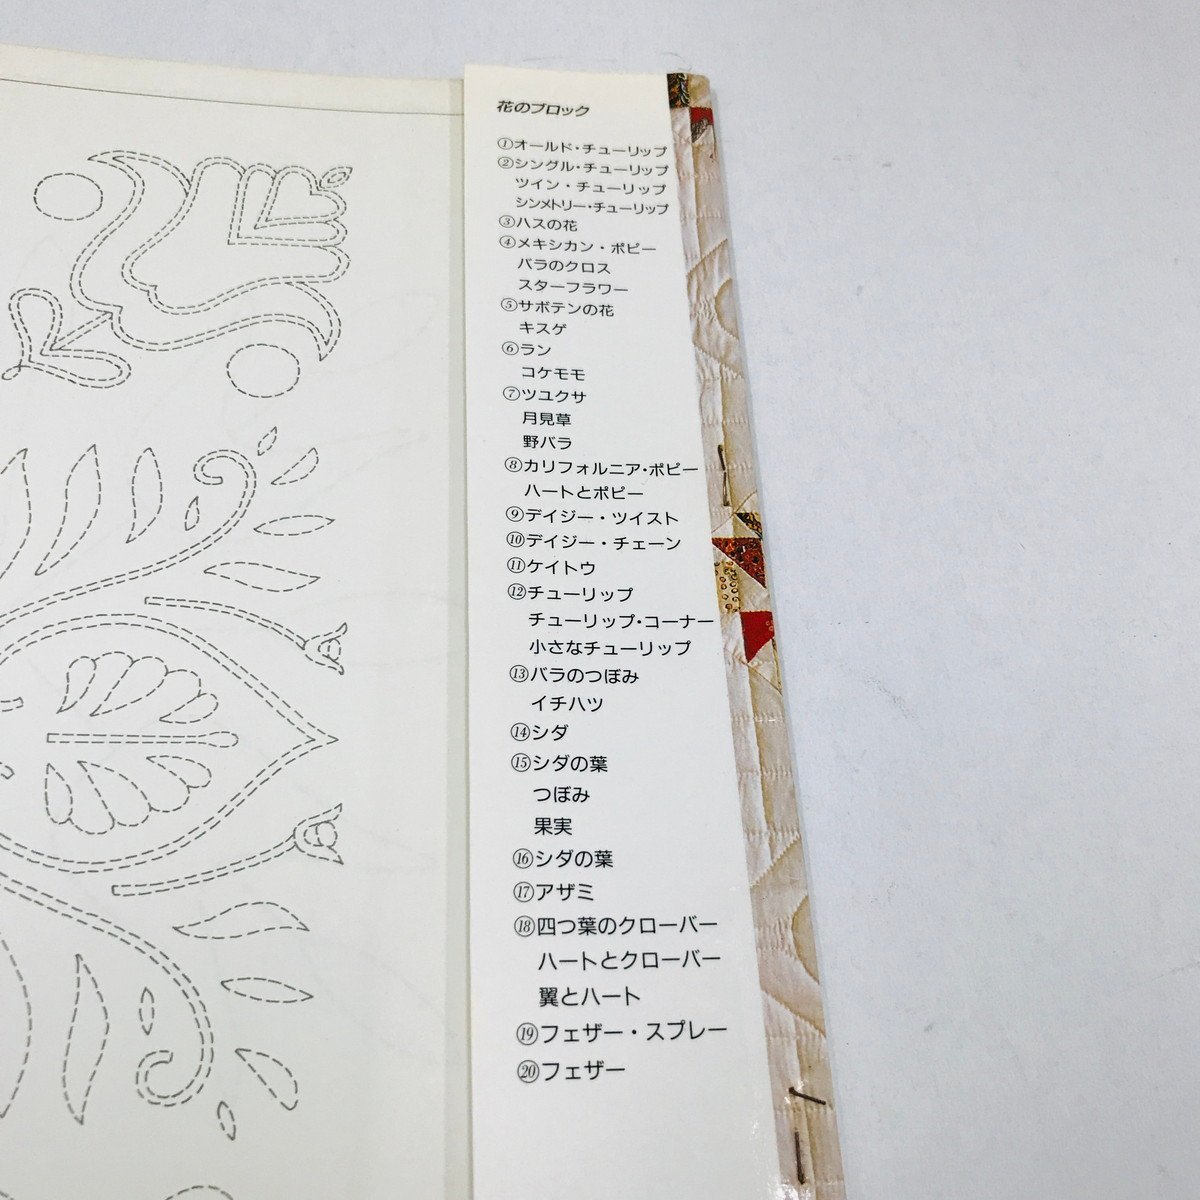 花のブロック
①オールド・チューリップ
②シングル・チューリップ
ツイン・チューリップ
シンメトリー・チューリップ
③ハスの花
④メキシカン・ポピー
バラのクロス
スターフラワー
⑤サボテンの花
キスゲ
⑥ラン
コケモモ
⑦ツユクサ
月見草
野バラ
⑧カリフォルニア・ポピー
ハートとポピー
⑨デイジー・ツイスト
⑩デイジー・チェーン
⑪ケイトウ
⑫チューリップ
チューリップ・コーナー
小さなチューリップ
⑬バラのつぼみ
イチハツ
⑭シダ
⑮シダの葉
つぼみ
果実
⑯シダの葉
⑰アザミ
⑱四つ葉のクローバー
ハートとクローバー
翼とハート
⑲フェザー・スプレー
⑳フェザー